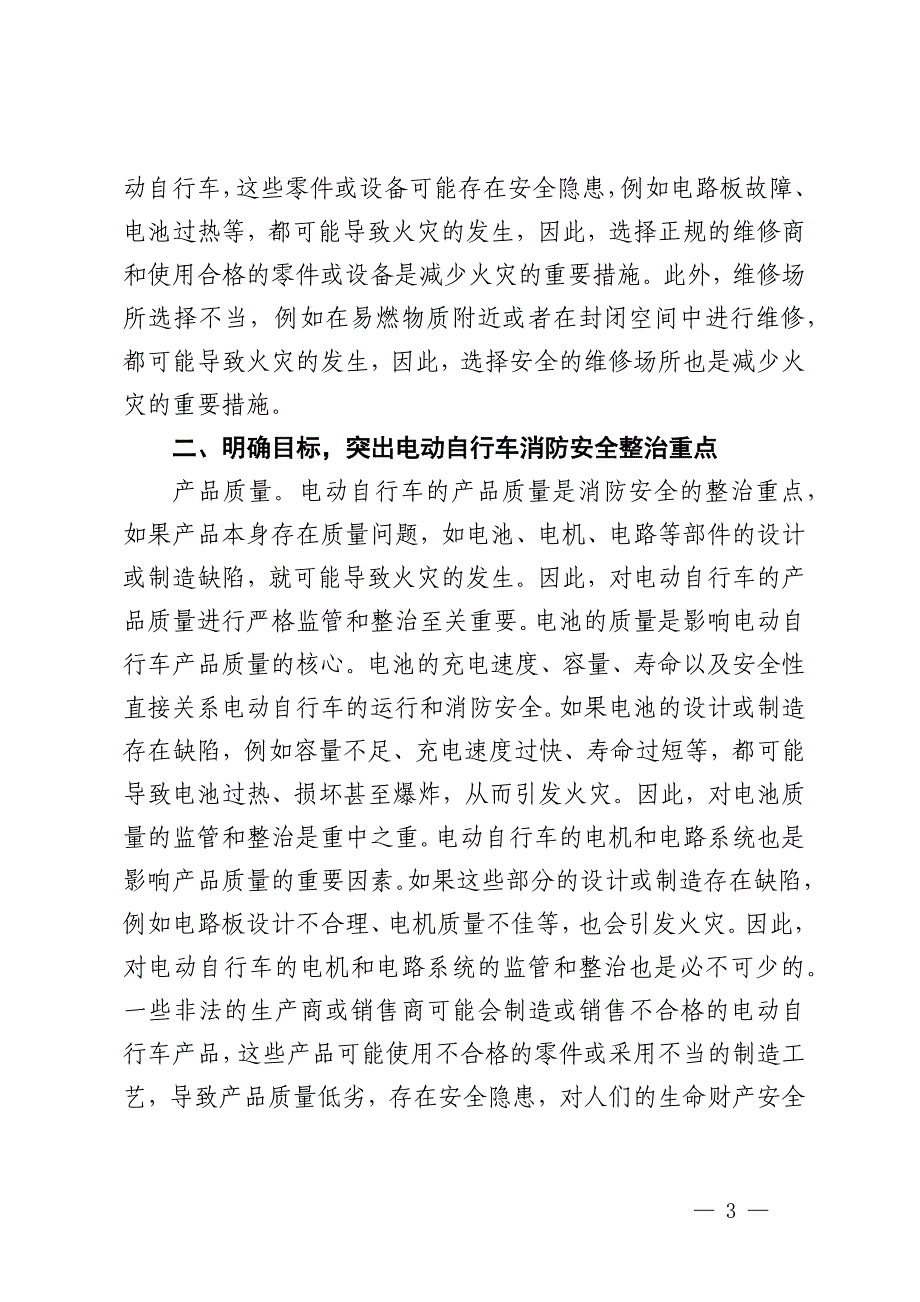 动自行车，这些零件或设备可能存在安全隐患，例如电路板故障、
电池过热等，都可能导致火灾的发生，因此，选择正规的维修商
和使用合格的零件或设备是减少火灾的重要措施。此外，维修场
所选择不当，例如在易燃物质附近或者在封闭空间中进行维修，
都可能导致火灾的发生，因此，选择安全的维修场所也是减少火
灾的重要措施。
二、明确目标，突出电动自行车消防安全整治重点
产品质量。电动自行车的产品质量是消防安全的整治重点，
如果产品本身存在质量问题，如电池、电机、电路等部件的设计
或制造缺陷，就可能导致火灾的发生。因此，对电动自行车的产
品质量进行严格监管和整治至关重要。电池的质量是影响电动自
行车产品质量的核心。电池的充电速度、容量、寿命以及安全性
直接关系电动自行车的运行和消防安全。如果电池的设计或制造
存在缺陷，例如容量不足、充电速度过快、寿命过短等，都可能
导致电池过热、损坏甚至爆炸，从而引发火灾。因此，对电池质
量的监管和整治是重中之重。电动自行车的电机和电路系统也是
影响产品质量的重要因素。如果这些部分的设计或制造存在缺陷，
例如电路板设计不合理、电机质量不佳等，也会引发火灾。因此，
对电动自行车的电机和电路系统的监管和整治也是必不可少的。
一些非法的生产商或销售商可能会制造或销售不合格的电动自
行车产品，这些产品可能使用不合格的零件或采用不当的制造工
艺，导致产品质量低劣，存在安全隐患，对人们的生命财产安全
— 3 —